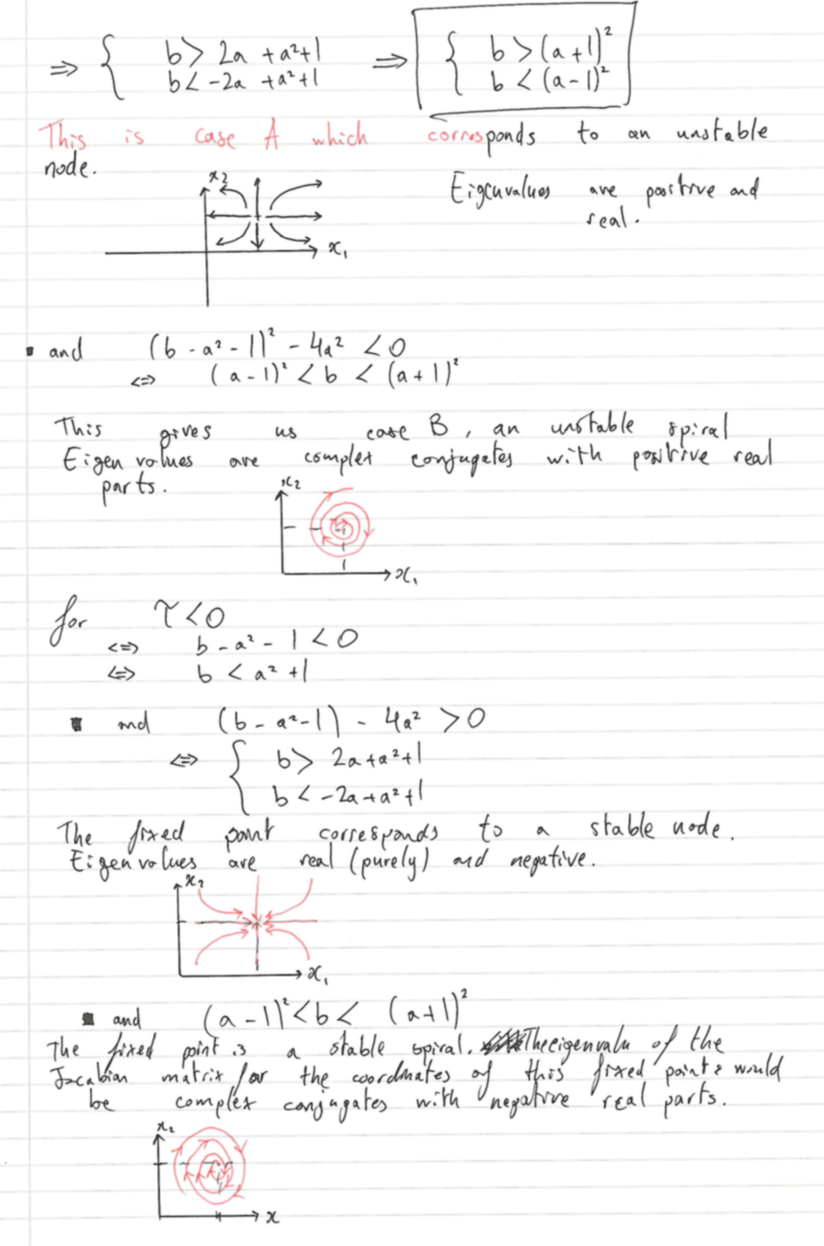 ⇒ { b > 2a + a² + 1 ⇒ { b > (a+1)²
b < -2a + a² + 1 b < (a-1)²
This is case A which corresponds to an unstable
node.
Eigenvalues are positive and
real.
x₂
x₁
and (b - a² - 1)² - 4a² < 0
⇔ (a-1)² < b < (a+1)²
This gives us case B, an unstable spiral
Eigenvalues are complex conjugates with positive real
parts.
x₂
x₁
for τ < 0
⇔ b - a² - 1 < 0
⇔ b < a² + 1
and (b - a² - 1) - 4a² > 0
⇔ { b > 2a + a² + 1
b < -2a + a² + 1
The fixed point corresponds to a stable node.
Eigenvalues are real (purely) and negative.
x₂
x₁
and (a-1)² < b < (a+1)²
The fixed point is a stable spiral. The eigenvalu of the
Jacabian matrix for the coordinates of this fixed points would
be complex conjugates with negative real parts.
x₂
x